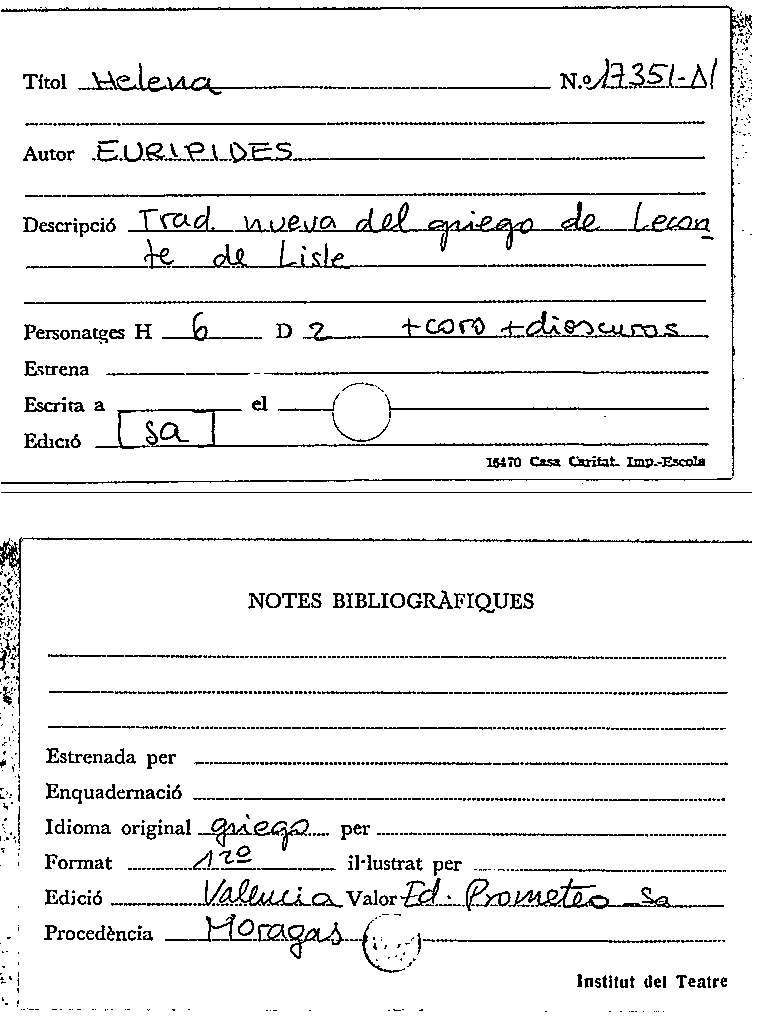 Títol Helena N.º 17351-N
Autor EURIPIDES
Descripció Trad. nueva del griego de Lecon
te de Lisle
Personatges H 6 D 2 +coro +dioscuros
Estrena
Escrita a el
Edició sa
15470 Casa Caritat. Imp.-Escola
NOTES BIBLIOGRÀFIQUES
Estrenada per
Enquadernació
Idioma original griego per
Format 12º il·lustrat per
Edició Valencia Valor Ed. Prometeo sa
Procedència Moragas
Institut del Teatre